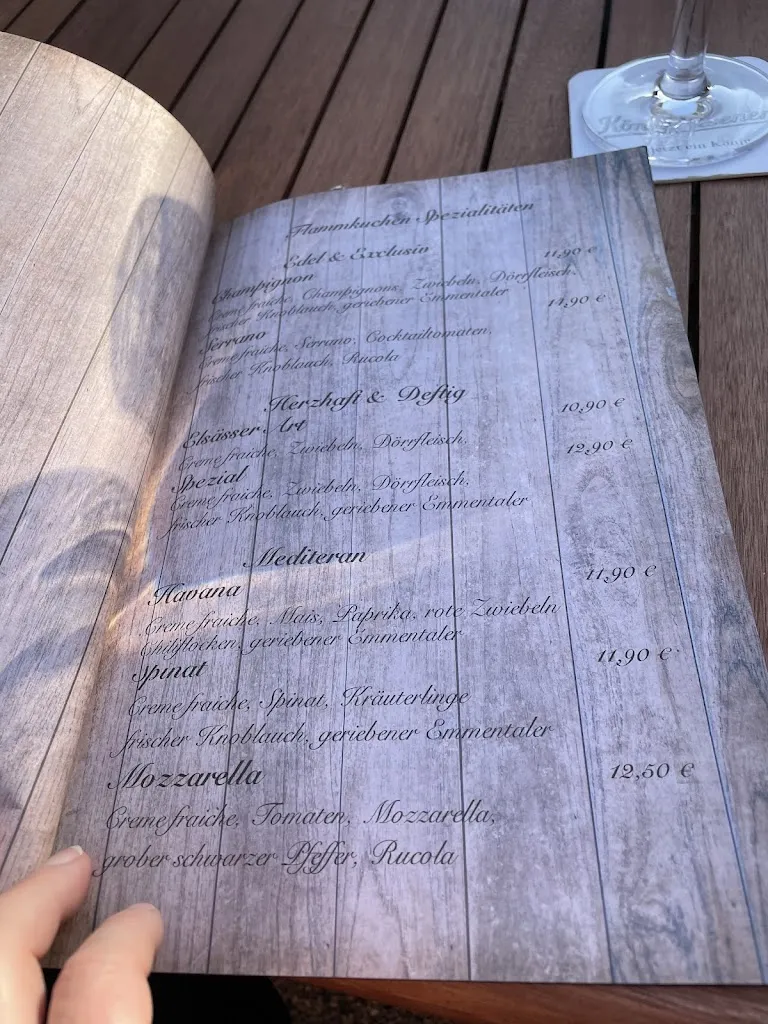 Flammkuchen Spezialitäten
Edel & Exclusiv
Champignon 11,90 €
Creme fraiche, Champignons, Zwiebeln, Dörrfleisch,
frischer Knoblauch, geriebener Emmentaler
Serrano 14,90 €
Creme fraiche, Serrano, Cocktailtomaten,
frischer Knoblauch, Rucola
Herzhaft & Deftig
Elsässer Art 10,90 €
Creme fraiche, Zwiebeln, Dörrfleisch,
Spezial 12,90 €
Creme fraiche, Zwiebeln, Dörrfleisch,
frischer Knoblauch, geriebener Emmentaler
Mediteran
Havana 11,90 €
Creme fraiche, Mais, Paprika, rote Zwiebeln
Chiliflocken, geriebener Emmentaler
Spinat 11,90 €
Creme fraiche, Spinat, Kräuterlinge
frischer Knoblauch, geriebener Emmentaler
Mozzarella 12,50 €
Creme fraiche, Tomaten, Mozzarella,
grober schwarzer Pfeffer, Rucola